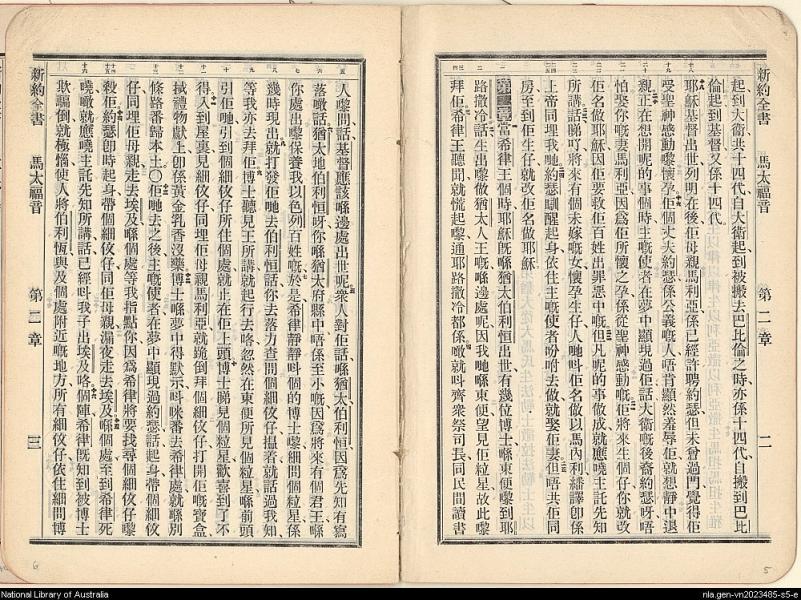 新約全書 馬太福音 第二章 二
起到大衛共十四代自大衛起到被搬去巴比倫之時亦係十四代自搬到巴比
倫起到基督又係十四代
耶穌基督出世列明在後佢母親馬利亞係已經許聘約瑟但未曾過門覺得佢
受聖神感動嚟懷孕佢個丈夫約瑟係公義嘅人唔肯顯然羞辱佢就想靜中退
親正在想開呢的事個時主嘅使者在夢中顯現過佢話大衛嘅後裔約瑟呀唔
怕娶你嘅妻馬利亞因為佢所懷之孕係從聖神感動嘅佢將來生個仔你就改
佢名做耶穌因佢要救佢百姓出罪惡中嘅但凡呢的事做成就應嘵主託先知
所講話睇吖將來有個未嫁嘅女懷孕生仔人哋呌佢名做以馬內利繙譯卽係
上帝同埋我哋約瑟瞓醒起身依住主嘅使者吩咐去做就娶佢妻但唔共佢同
房至到佢生仔就改佢名做耶穌
第二章當希律王個時耶穌旣喺猶太伯利恒出世有幾位博士喺東便嚟到耶
路撒冷話生出嚟做猶太人王嘅喺邊處呢因我哋喺東便望見佢粒星故此嚟
拜佢希律王聽聞就慌起嚟通耶路撒冷都係噉就呌齊衆祭司長同民間讀書
新約全書 馬太福音 第二章 三
人嚟問話基督應該喺邊處出世呢衆人對佢話喺猶太伯利恒因為先知有寫
落嘅話猶太地伯利恒呀你喺猶太府縣中唔係至小嘅因爲將來有個君王喺
你處出嚟保養我以色列百姓嘅於是希律靜靜呌個的博士嚟細問個粒星係
幾時現出就打發佢哋去伯利恒話你去落力查問個細伩仔搵着就話過我知
等我亦去拜佢博士聽見王所講就起行去咯忽然在東便所見個粒星喺前頭
引佢哋引到個細伩仔所住個處就止在佢上頭博士睇見個粒星歡喜到了不
得入到屋裏見細伩仔同埋佢母親馬利亞就跪倒拜個細伩仔打開佢嘅寶盒
㧜禮物獻上卽係黃金乳香沒藥博士喺夢中得默示呌咪番去希律處就喺別
條路番歸本土〇佢哋去之後主嘅使者在夢中顯現過約瑟話起身帶個細伩
仔同埋佢母親走去埃及喺個處等我指點你因爲希律將要找尋個細伩仔嚟
殺佢約瑟卽時起身帶個細伩仔同佢母親漏夜走去埃及喺個處至到希律死
嘵噉就應嘵主託先知所講話已經呌我子出埃及咯個陣希律旣知到被博士
欺騙倒就極惱使人將伯利恆與及個處附近嘅地方所有細伩仔依住細問博
National Library of Australia
nla.gen-vn2023485-s5-e